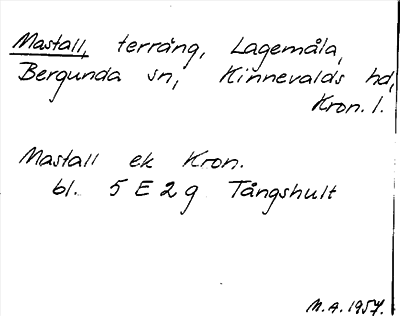 Mastall, terräng, Lagemåla,
Bergunda sn, Kinnevalds hd,
Kron. l.
Mastall ek Kron.
bl. 5 E 2 g Tångshult
M.A. 1957.